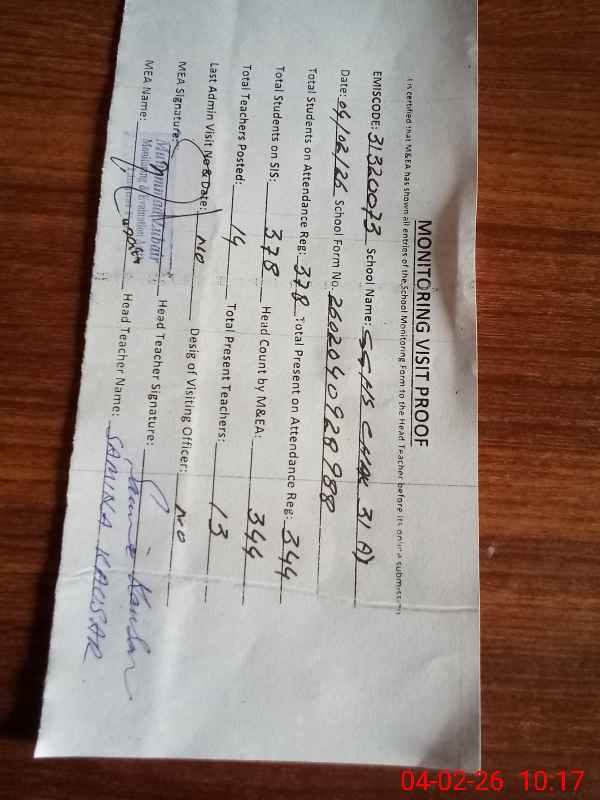 MONITORING VISIT PROOF
It is certified that M&EA has shown all entries of the School Monitoring Form to the Head Teacher before its online submission
EMISCODE: 31320073 School Name: GGHS CHAK 31 A)
Date: 04/02/26 School Form No. 2602040928988
Total Students on Attendance Reg: 378 Total Present on Attendance Reg: 344
Total Students on SIS: 378 Head Count by M&EA: 344
Total Teachers Posted: 14 Total Present Teachers: 13
Last Admin Visit No & Date: NO Desig of Visiting Officer: NO
MEA Signature: Head Teacher Signature:
Muhammad Zubair
Monitoring & Evaluation
MEA Name: Head Teacher Name: SAMINA KAUSAR
04-02-26 10:17